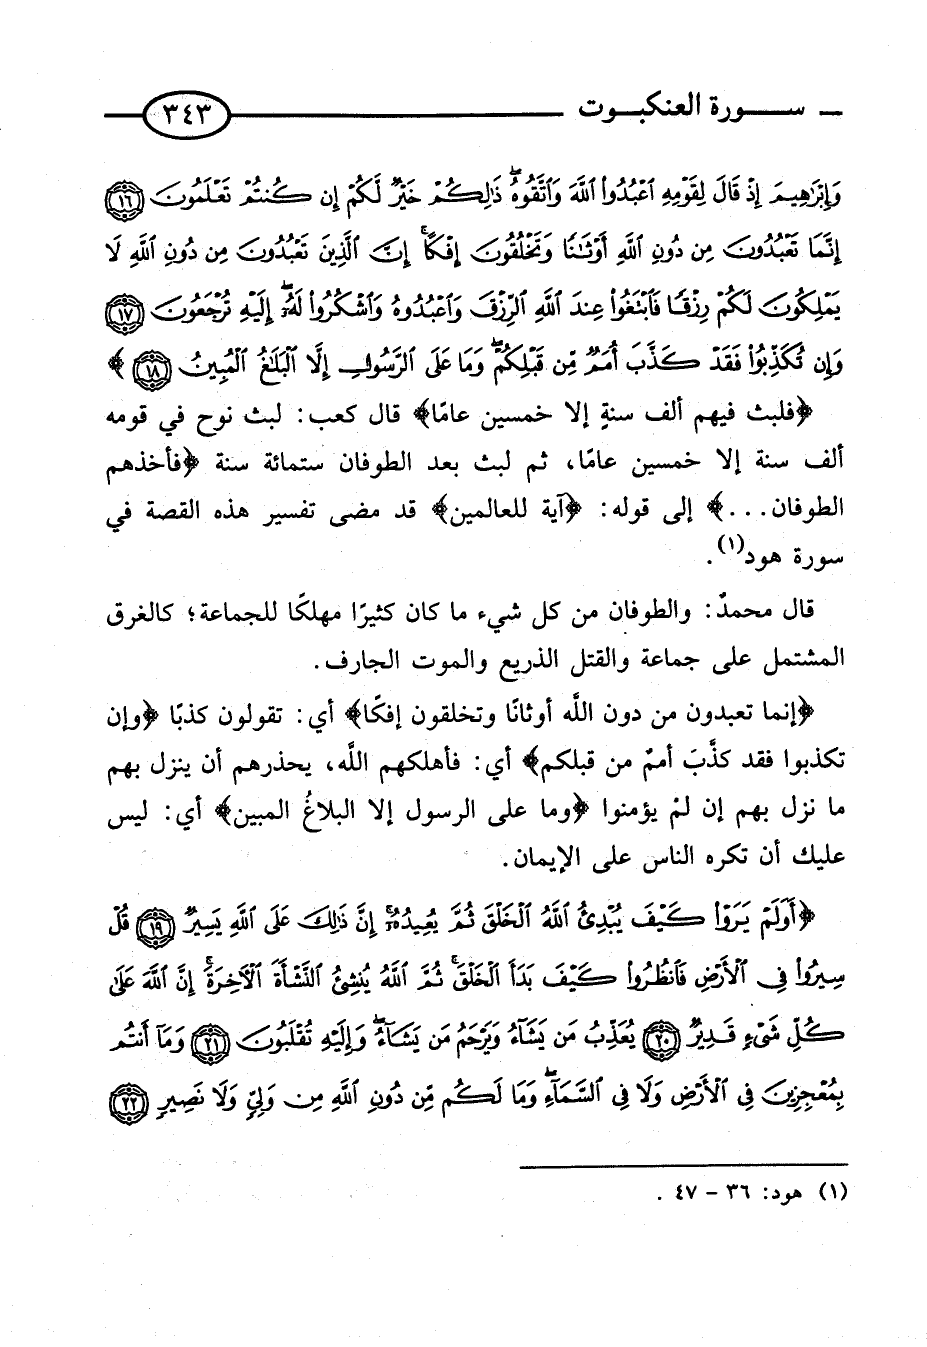 سورة العنكبوت ٣٤٣
وَإِبْرَٰهِيمَ إِذْ قَالَ لِقَوْمِهِ ٱعْبُدُوا۟ ٱللَّهَ وَٱتَّقُوهُ ۖ ذَٰلِكُمْ خَيْرٌ لَّكُمْ إِن كُنتُمْ تَعْلَمُونَ ١٦
إِنَّمَا تَعْبُدُونَ مِن دُونِ ٱللَّهِ أَوْثَٰنًا وَتَخْلُقُونَ إِفْكًا ۚ إِنَّ ٱلَّذِينَ تَعْبُدُونَ مِن دُونِ ٱللَّهِ لَا
يَمْلِكُونَ لَكُمْ رِزْقًا فَٱبْتَغُوا۟ عِندَ ٱللَّهِ ٱلرِّزْقَ وَٱعْبُدُوهُ وَٱشْكُرُوا۟ لَهُۥٓ ۖ إِلَيْهِ تُرْجَعُونَ ١٧
وَإِن تُكَذِّبُوا۟ فَقَدْ كَذَّبَ أُمَمٌ مِّن قَبْلِكُمْ ۖ وَمَا عَلَى ٱلرَّسُولِ إِلَّا ٱلْبَلَٰغُ ٱلْمُبِينُ ١٨ ﴾
﴿فلبث فيهم ألف سنةٍ إلا خمسين عامًا﴾ قال كعب: لبث نوح في قومه
ألف سنة إلا خمسين عامًا، ثم لبث بعد الطوفان ستمائة سنة ﴿فأخذهم
الطوفان...﴾ إلى قوله: ﴿آية للعالمين﴾ قد مضى تفسير هذه القصة في
سورة هود(١).
قال محمدٌ: والطوفان من كل شيء ما كان كثيرًا مهلكًا للجماعة؛ كالغرق
المشتمل على جماعة والقتل الذريع والموت الجارف.
﴿إنما تعبدون من دون اللَّه أوثانًا وتخلقون إفكًا﴾ أي: تقولون كذبًا ﴿وإن
تكذبوا فقد كذَّبَ أممٌ من قبلكم﴾ أي: فأهلكهم اللَّه، يحذرهم أن ينزل بهم
ما نزل بهم إن لمْ يؤمنوا ﴿وما على الرسول إلا البلاغُ المبين﴾ أي: ليس
عليك أن تكره الناس على الإيمان.
﴿أَوَلَمْ يَرَوْا۟ كَيْفَ يُبْدِئُ ٱللَّهُ ٱلْخَلْقَ ثُمَّ يُعِيدُهُۥٓ ۚ إِنَّ ذَٰلِكَ عَلَى ٱللَّهِ يَسِيرٌ ١٩ قُلْ
سِيرُوا۟ فِى ٱلْأَرْضِ فَٱنظُرُوا۟ كَيْفَ بَدَأَ ٱلْخَلْقَ ۚ ثُمَّ ٱللَّهُ يُنشِئُ ٱلنَّشْأَةَ ٱلْءَاخِرَةَ ۚ إِنَّ ٱللَّهَ عَلَىٰ
كُلِّ شَىْءٍ قَدِيرٌ ٢٠ يُعَذِّبُ مَن يَشَآءُ وَيَرْحَمُ مَن يَشَآءُ ۖ وَإِلَيْهِ تُقْلَبُونَ ٢١ وَمَآ أَنتُم
بِمُعْجِزِينَ فِى ٱلْأَرْضِ وَلَا فِى ٱلسَّمَآءِ ۖ وَمَا لَكُم مِّن دُونِ ٱللَّهِ مِن وَلِىٍّ وَلَا نَصِيرٍ ٢٢
(١) هود: ٣٦ - ٤٧ .